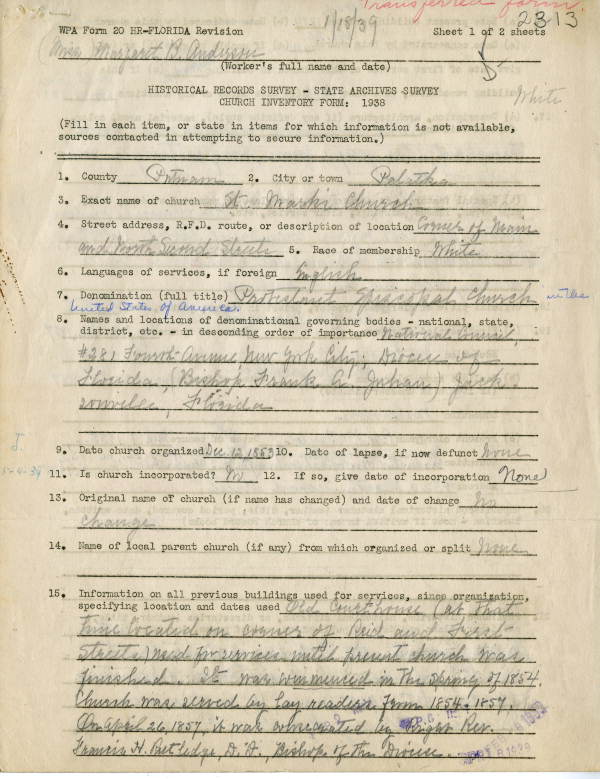 Transferred form
2313
WPA Form 20 HR-FLORIDA Revision 1/18/39 Sheet 1 of 2 sheets
(Miss) Margaret B. Anderson
(Worker's full name and date)
HISTORICAL RECORDS SURVEY - STATE ARCHIVES SURVEY
CHURCH INVENTORY FORM: 1938
White
(Fill in each item, or state in items for which information is not available,
sources contacted in attempting to secure information.)
1. County Putnam 2. City or town Palatka
3. Exact name of church St. Marks Church
4. Street address, R.F.D. route, or description of location Corner of Main
and North Second Streets 5. Race of membership White
6. Languages of services, if foreign English
7. Denomination (full title) Protestant Episcopal Church in the
United States of America.
8. Names and locations of denominational governing bodies - national, state,
district, etc. - in descending order of importance National Council,
#281 Fourth Avenue, New York City; Diocese of
Florida, (Bishop Frank A. Juhan) Jack-
sonville, Florida
9. Date church organized Dec. 12, 1853 10. Date of lapse, if now defunct None
11. Is church incorporated? No 12. If so, give date of incorporation None
13. Original name of church (if name has changed) and date of change No
change
14. Name of local parent church (if any) from which organized or split None
15. Information on all previous buildings used for services, since organization,
specifying location and dates used Old Courthouse (at that
time located on corner of Reid and First
Streets) used for services until present church was
finished. It was commenced in the Spring of 1854.
Church was served by lay readers from 1854-1857.
On April 26, 1857, it was consecrated by Right Rev.
Francis H. Rutledge, D.D., Bishop of the Diocese.